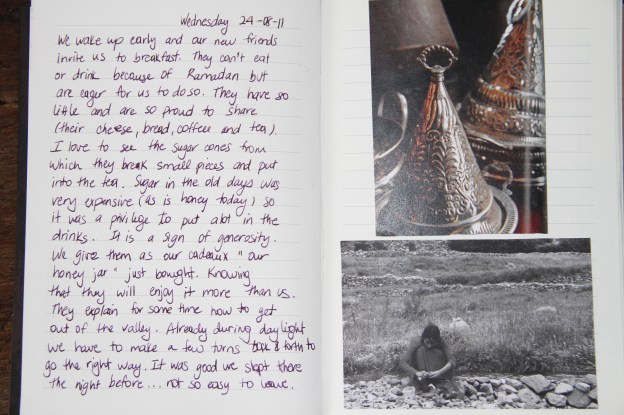 Wednesday 24-08-11
We wake up early and our new friends
invite us to breakfast. They can't eat
or drink because of Ramadan but
are eager for us to do so. They have so
little and are so proud to share
(their cheese, bread, coffee and tea).
I love to see the sugar cones from
which they break small pieces and put
into the tea. Sugar in the old days was
very expensive (as is honey today) so
it was a privilige to put alot in the
drinks. It is a sign of generosity.
We give them as our cadeaux "our
honey jar" just bought. Knowing
that they will enjoy it more than us.
They explain for some time how to get
out of the valley. Already during daylight
we have to make a few turns back & forth to
go the right way. It was good we slept there
the night before... not so easy to leave.